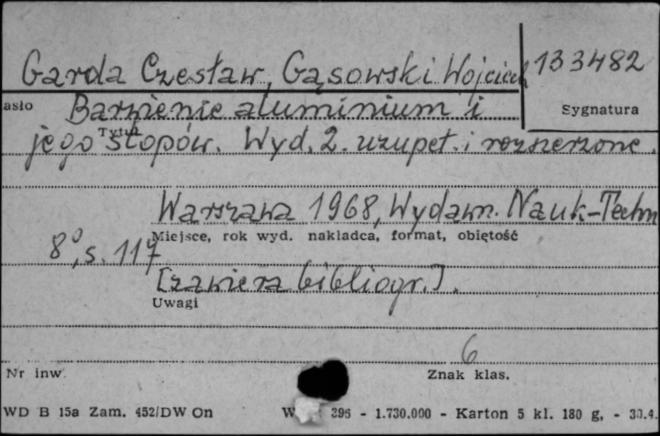 Garda Czesław, Gąsowski Wojciech 133482
asło Barwienie aluminium i Sygnatura
Tytuł
jego stopów. Wyd. 2. uzupeł. i rozszerzone.
Warszawa 1968, Wydawn. Nauk-Techn
Miejsce, rok wyd. nakładca, format, obiętość
8°, s. 117
[zawiera bibliogr.].
Uwagi
6
Nr inw. Znak klas.
WD B 15a Zam. 452/DW On W 396 - 1.730.000 - Karton 5 kl. 180 g. - 30.4.